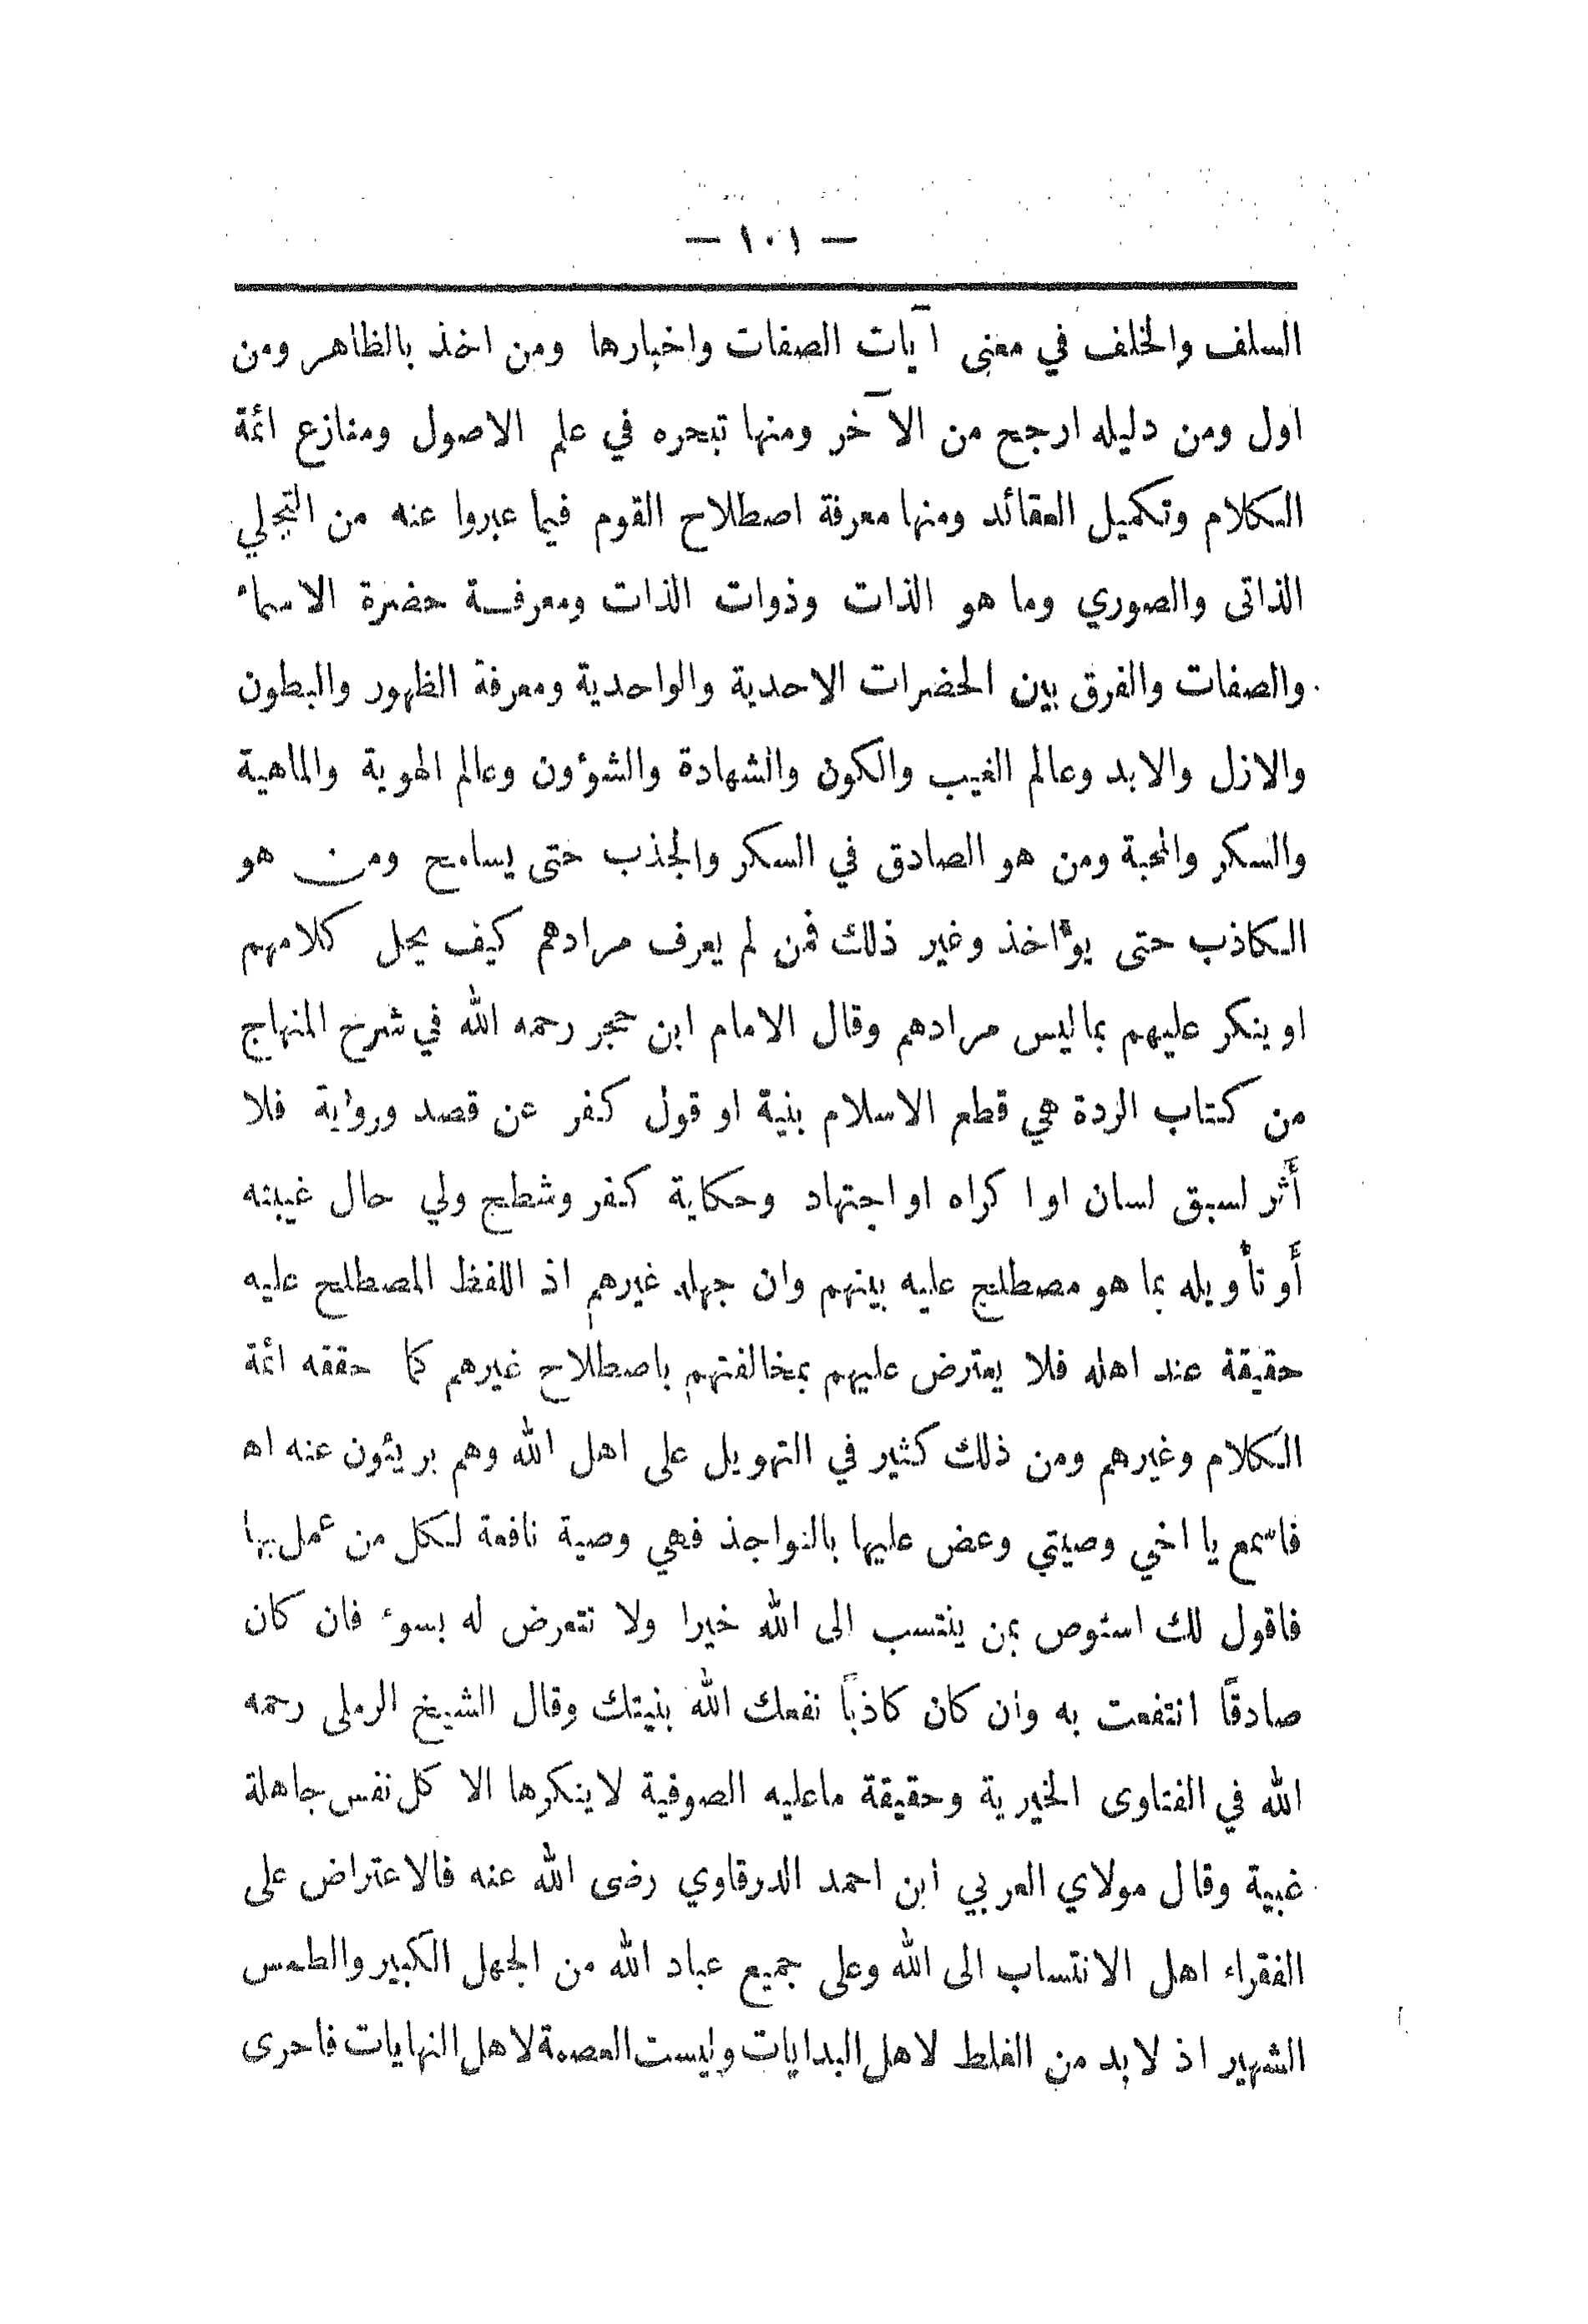 — ١٠١ —
السلف والخلف في معنى آيات الصفات واخبارها ومن اخذ بالظاهر ومن
اول ومن دليله ارجح من الآخر ومنها تبحره في علم الاصول ومنازع ائمة
الكلام وتكميل العقائد ومنها معرفة اصطلاح القوم فيما عبروا عنه من التجلي
الذاتى والصوري وما هو الذات وذوات الذات ومعرفة حضرة الاسماء
والصفات والفرق بين الحضرات الاحدية والواحدية ومعرفة الظهور والبطون
والازل والابد وعالم الغيب والكون والشهادة والشؤون وعالم الهوية والماهية
والسكر والمحبة ومن هو الصادق في السكر والجذب حتى يسامح ومن هو
الكاذب حتى يؤاخذ وغير ذلك فمن لم يعرف مرادهم كيف يحل كلامهم
او ينكر عليهم بماليس مرادهم وقال الامام ابن حجر رحمه الله في شرح المنهاج
من كتاب الردة هي قطع الاسلام بنية او قول كفر عن قصد ورواية فلا
أثر لسبق لسان او اكراه او اجتهاد وحكاية كفر وشطح ولي حال غيبته
أو تأويله بما هو مصطلح عليه بينهم وان جهله غيرهم اذ اللفظ المصطلح عليه
حقيقة عند اهله فلا يعترض عليهم بمخالفتهم باصطلاح غيرهم كما حققه ائمة
الكلام وغيرهم ومن ذلك كثير في التهويل على اهل الله وهم بريئون عنه اه
فاسمع يا اخي وصيتي وعض عليها بالنواجذ فهي وصية نافعة لكل من عمل بها
فاقول لك استوص بمن ينتسب الى الله خيرا ولا تتعرض له بسوء فان كان
صادقًا انتفعت به وان كان كاذبًا نفعك الله بنيتك وقال الشيخ الرملى رحمه
الله في الفتاوى الخيرية وحقيقة ماعليه الصوفية لاينكرها الا كل نفس جاهلة
غبية وقال مولاي العربي ابن احمد الدرقاوي رضى الله عنه فالاعتراض على
الفقراء اهل الانتساب الى الله وعلى جميع عباد الله من الجهل الكبير والطمس
الشهير اذ لا بد من الغلط لاهل البدايات وليست العصمة لاهل النهايات فاحرى